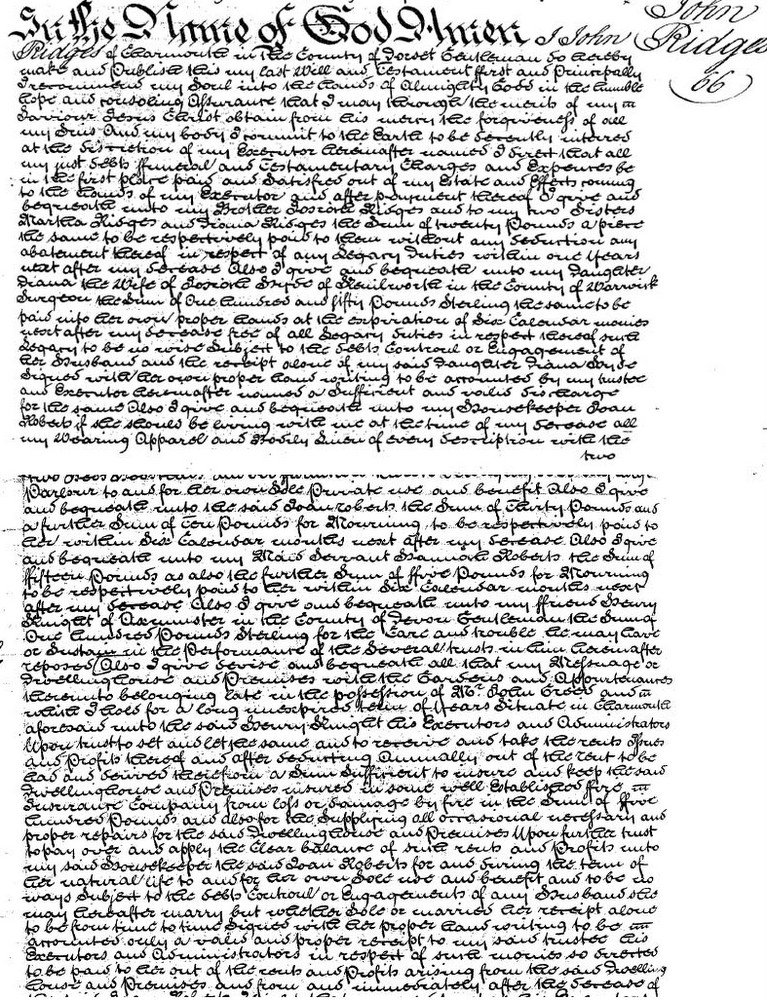 In the Name of God Amen I John
John
Ridges
66
Ridges of Charmouth in the County of Dorset Gentleman do hereby
make and Publish this my last Will and Testament ffirst and Principally
I recommend my Soul into the hands of Almighty God in the humble
hope and consoling Assurance that I may through the merits of my
Saviour Jesus Christ obtain from his mercy the forgiveness of all
my Sins And my body I commit to the Earth to be decently interred
at the discretion of my Executor hereinafter named I direct that all
my just debts funeral and Testamentary Charges and Expences be
in the first place paid and Satisfied out of my Estate and Effects coming
to the hands of my Executor and after payment thereof I give and
bequeath unto my Brother Josiah Ridges and to my two Sisters
Martha Ridges and Diana Ridges the Sum of twenty Pounds a piece
the same to be respectively paid to them without any deduction any
abatement thereof in respect of any Legacy Duties within one Years
next after my decease Also I give and bequeath unto my Daughter
Diana the Wife of Josiah of Kenilworth in the County of Warwick
Surgeon the Sum of One hundred and fifty Pounds Sterling the same to be
paid into her own proper hands at the expiration of Six Calendar months
next after my decease free of all Legacy duties in respect thereof such
Legacy to be no wise Subject to the debts Controul or Engagement of
her Husband and the receipt alone of my said Daughter Diana
Signed with her own proper hand writing to be accounted by my trustee
and Executor hereinafter named a Sufficient and valid discharge
for the same Also I give and bequeath unto my Housekeeper Joan
Roberts if she should be living with me at the time of my decease all
my Wearing Apparel and Bodily Linen of every description with the
two
two
Parlour to and for her own Sole Private use and benefit Also I give
and bequeath unto the said Joan Roberts the Sum of Thirty Pounds and
a further Sum of Ten Pounds for Mourning to be respectively paid to
her within Six Calendar months next after my decease Also I give
and bequeath unto my Maid Servant Hannah Roberts the Sum of
ffifteen Pounds as also the further Sum of ffive Pounds for Mourning
to be respectively paid to her within Six Calendar months next
after my decease Also I give and bequeath unto my ffriend Henry
Knight of Axminster in the County of Devon Gentleman the Sum of
One hundred Pounds Sterling for the Care and trouble he may have
or Sustain in the Performance of the Several trusts in him hereinafter
reposed Also I give devise and bequeath all that my Messuage or
Dwellinghouse and Premises with the Gardens and Appurtenances
thereunto belonging late in the possession of Mr. John Green and
which I hold for a long unexpired term of Years Situate in Charmouth
aforesaid unto the said Henry Knight his Executors and Administrators
Upon trust to set and let the same and to receive and take the rents Issues
and Profits thereof and after deducting Annually out of the rent to be
had and derived therefrom a Sum Sufficient to insure and keep the said
Dwellinghouse and Premises insured in some well Established ffire
Insurance Company from loss or damage by fire in the Sum of ffive
hundred Pounds and also for the Supplying all occasional necessary and
proper repairs for the said Dwellinghouse and Premises Upon further trust
to pay over and apply the Clear balance of such rents and Profits unto
my said Housekeeper the said Joan Roberts for and during the term of
her natural life to and for her own Sole use and benefit and to be no
ways Subject to the debts Controul or Engagements of any Husband she
may hereafter marry but whether Sole or married her receipt alone
to be from time to time Signed with her proper hand writing to be
accounted only a valid and proper receipt to my said trustee his
Executors and Administrators in respect of such monies so directed
to be paid to her out of the rents and Profits arising from the said Dwelling
house and Premises and from and immediately after the decease of